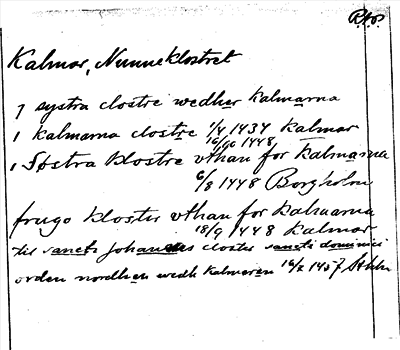 Kalmar, Nunneklostret
j systra clostre wedher kalmarna
i kalmarna clostre 1/4 1434 Kalmar
16/10 1448
i Søstra Klostre vthan for kalmarna
6/8 1448 Borgholm
frugo kloster vthan for kalmarna
18/9 1448 Kalmar
til sancti Johannes closter sancti dominici
orden nordhen wedh kalmaren 16/2 1457 Sthlm